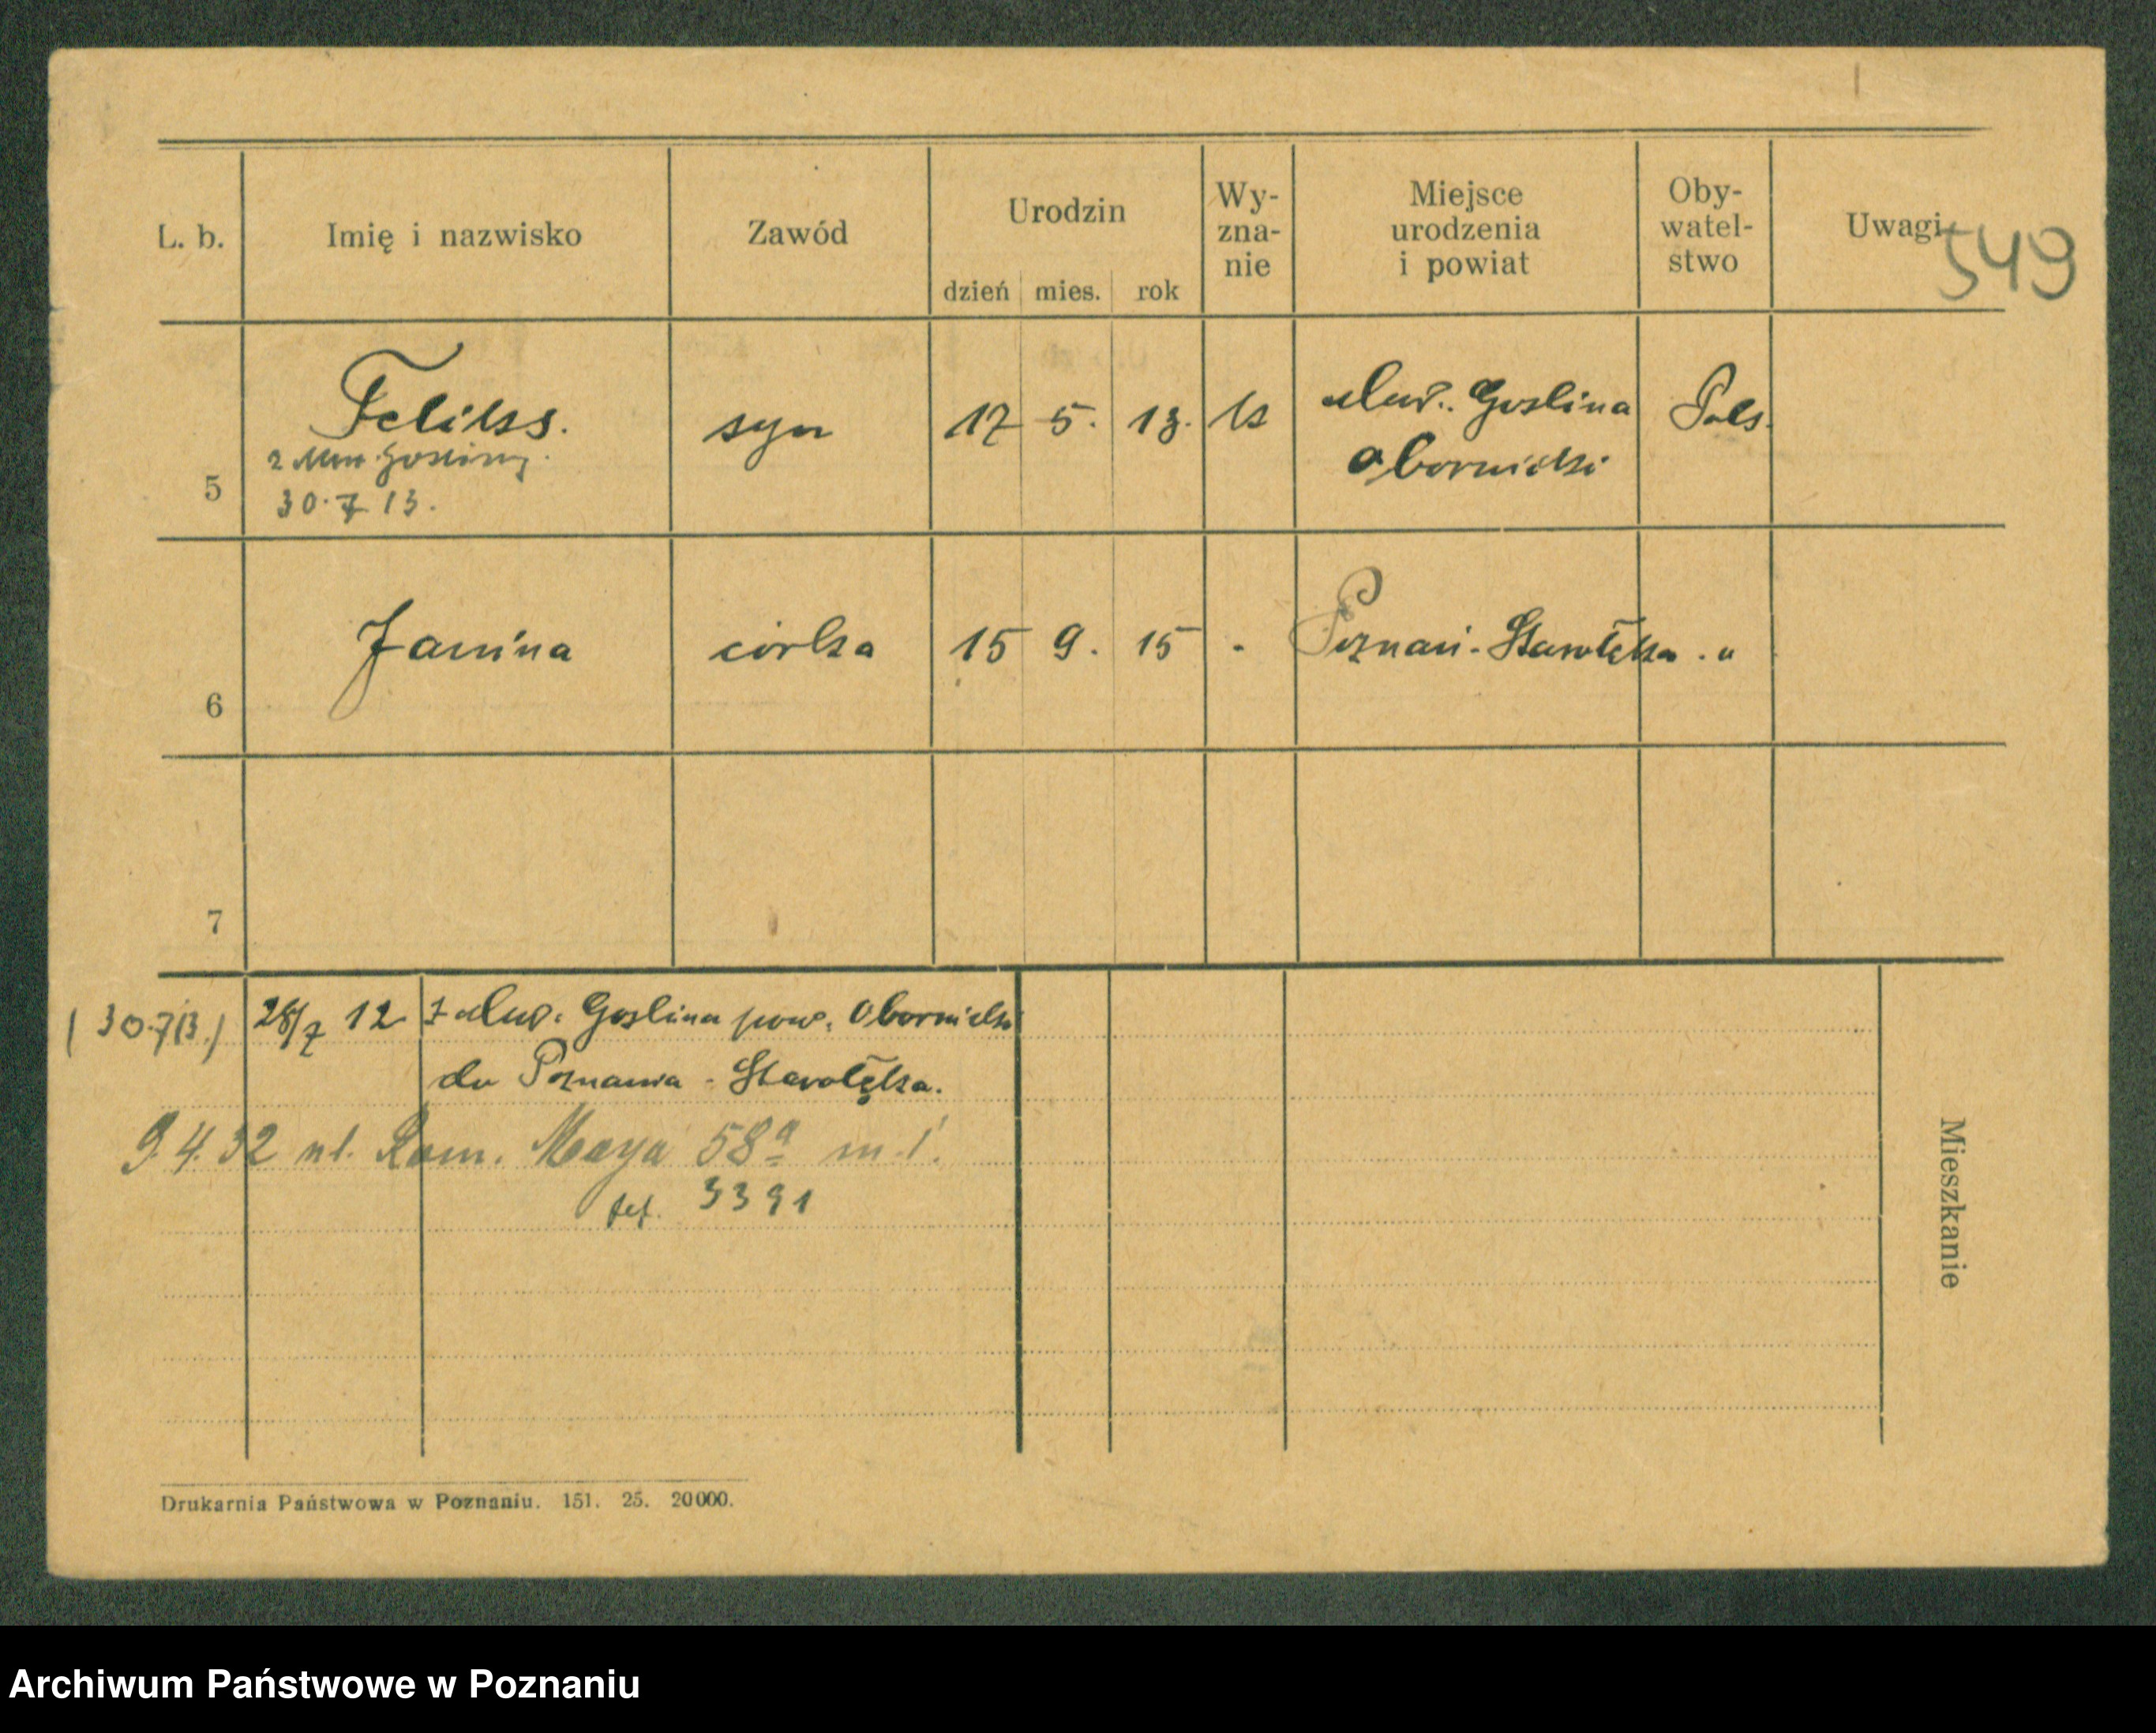 L. b. Imię i nazwisko Zawód Urodzin dzień mies. rok Wy-zna-nie Miejsce urodzenia i powiat Oby-watel-stwo Uwagi
549
5 Feliks. syn 17 5. 13. k Mur. Goslina Obornicki Pols.
z Mur Gosliny.
30.7 13.
6 Janina córka 15 9. 15 " Poznań-Starołęka . "
7
(30.713.) 28/7 12 z Mur. Goslina pow. Obornicki
do Poznania - Starołęka.
9.4.32 ul. Rom. Maya 58a m. 1.
tef. 3391
Mieszkanie
Drukarnia Państwowa w Poznaniu. 151. 25. 20000.
Archiwum Państwowe w Poznaniu